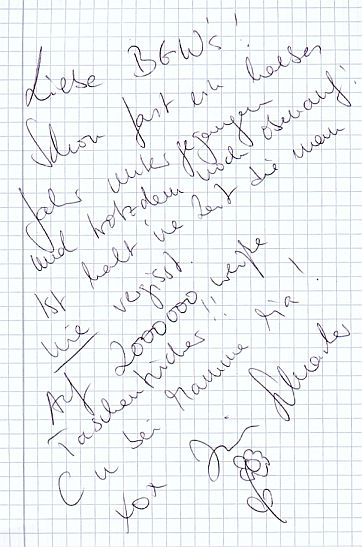 Liebe BGW's!
Schon fast ein halbes
Jahr untergegangen
und trotzdem noch obenauf!
Ist halt 'ne Zeit die man
nie vergisst.
Auf 2000000 weiße
Taschentücher!!
C u bei Mamma Mia!
xox